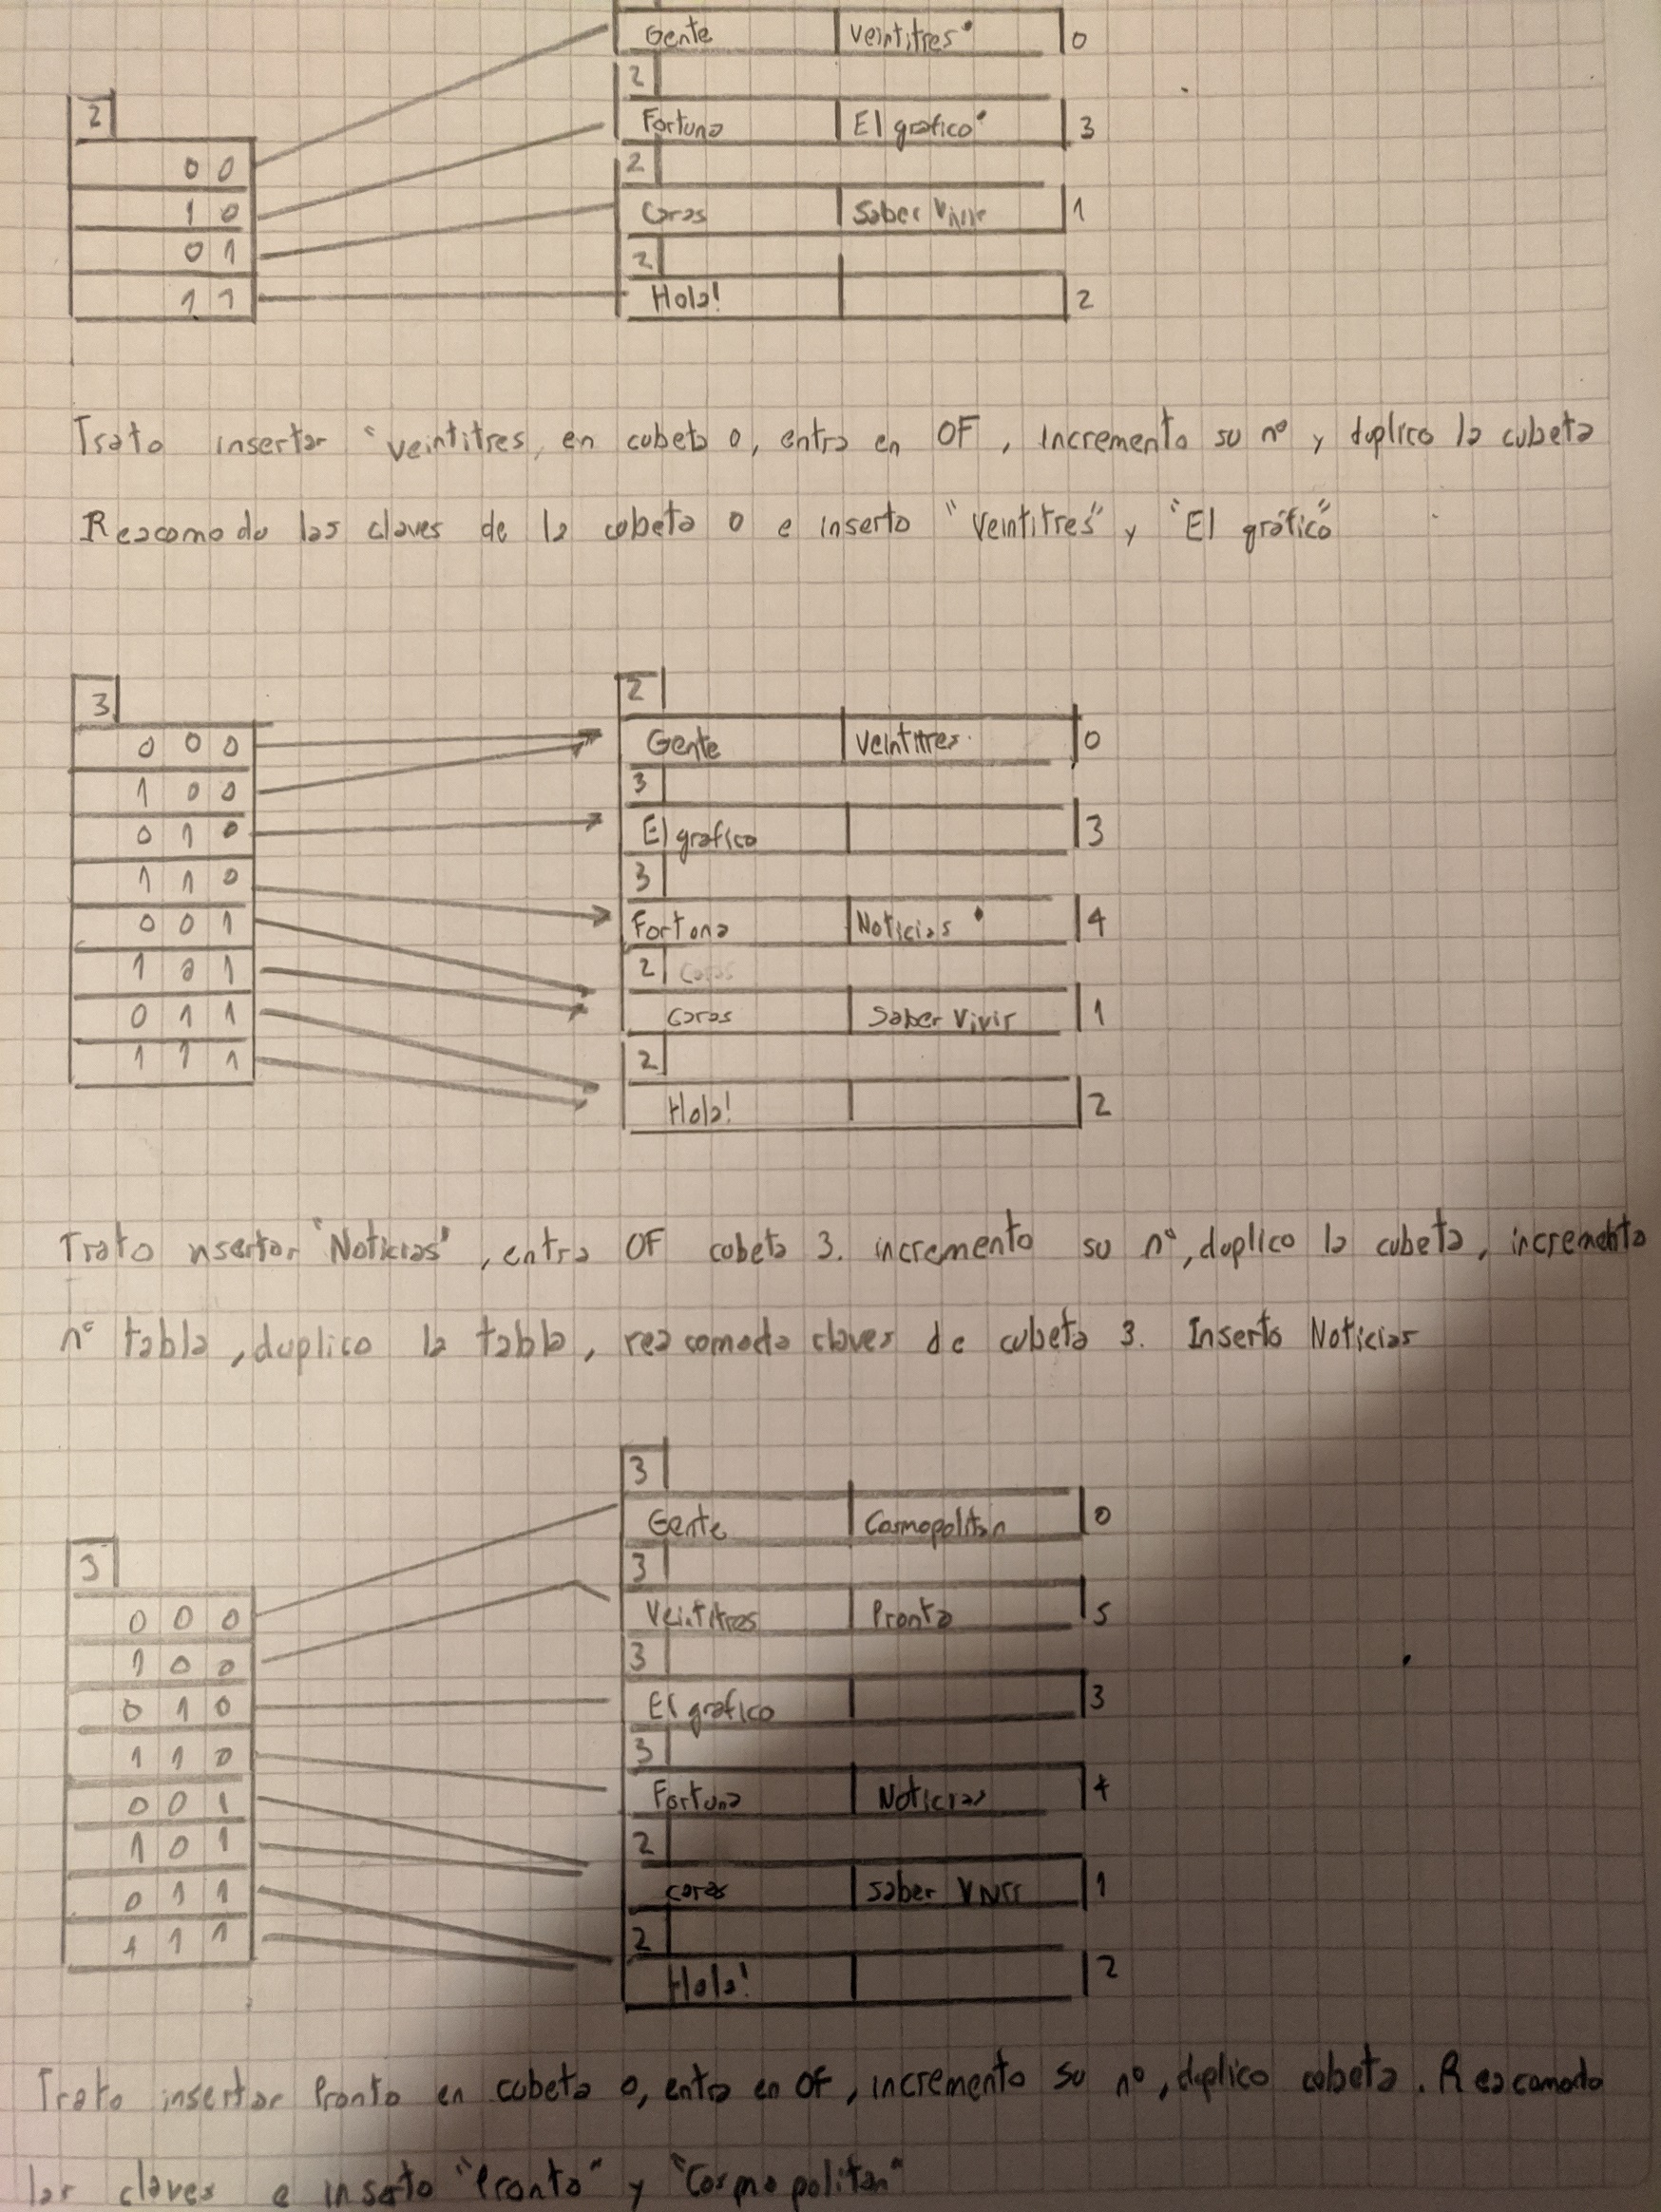 Gente Veintitres 0
2
2
Fortuna El grafico 3
0 0
2
1 0
Caras Saber Vivir 1
0 1
2
1 1
Hola! 2
Trato insertar "veintitres, en cubeta 0, entra en OF, incremento su nº y duplico la cubeta
Reacomodo las claves de la cubeta 0 e inserto "Veintitres" y "El gráfico"
2
3
0 0 0
Gente Veintitres 0
1 0 0
3
0 1 0
El grafico 3
1 1 0
3
0 0 1
Fortuna Noticias 4
1 0 1
2 Caras
0 1 1
Caras Saber Vivir 1
1 1 1
2
Hola! 2
Trato nsertar "Noticias", entra OF cubeta 3. incremento su nº, duplico la cubeta, incremento
nº tabla, duplico la tabla, reacomodo claves de cubeta 3. Inserto Noticias
3
Gente Cosmopolitan 0
3
3
0 0 0
Veintitres Pronto 5
1 0 0
3
0 1 0
El grafico 3
1 1 0
3
0 0 1
Fortuna Noticias 4
1 0 1
2
0 1 1
caras saber Vivir 1
1 1 1
2
Hola! 2
Trato insertar Pronto en cubeta 0, entra en OF, incremento su nº, duplico cubeta. Reacomodo
las claves e inserto "Pronto" y "Cosmopolitan"